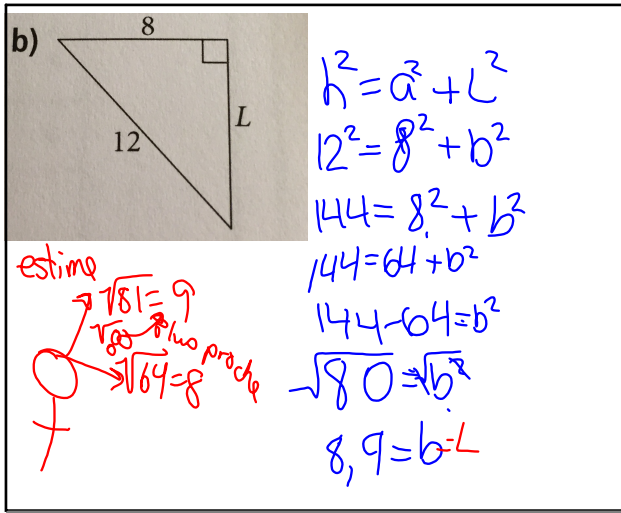 b)
8
12
L
h² = a² + L²
12² = 8² + b²
144 = 8² + b²
144 = 64 + b²
144 - 64 = b²
√80 = √b²
8,9 = b = L
estime
√81 = 9
√80 plus proche
√64 = 8